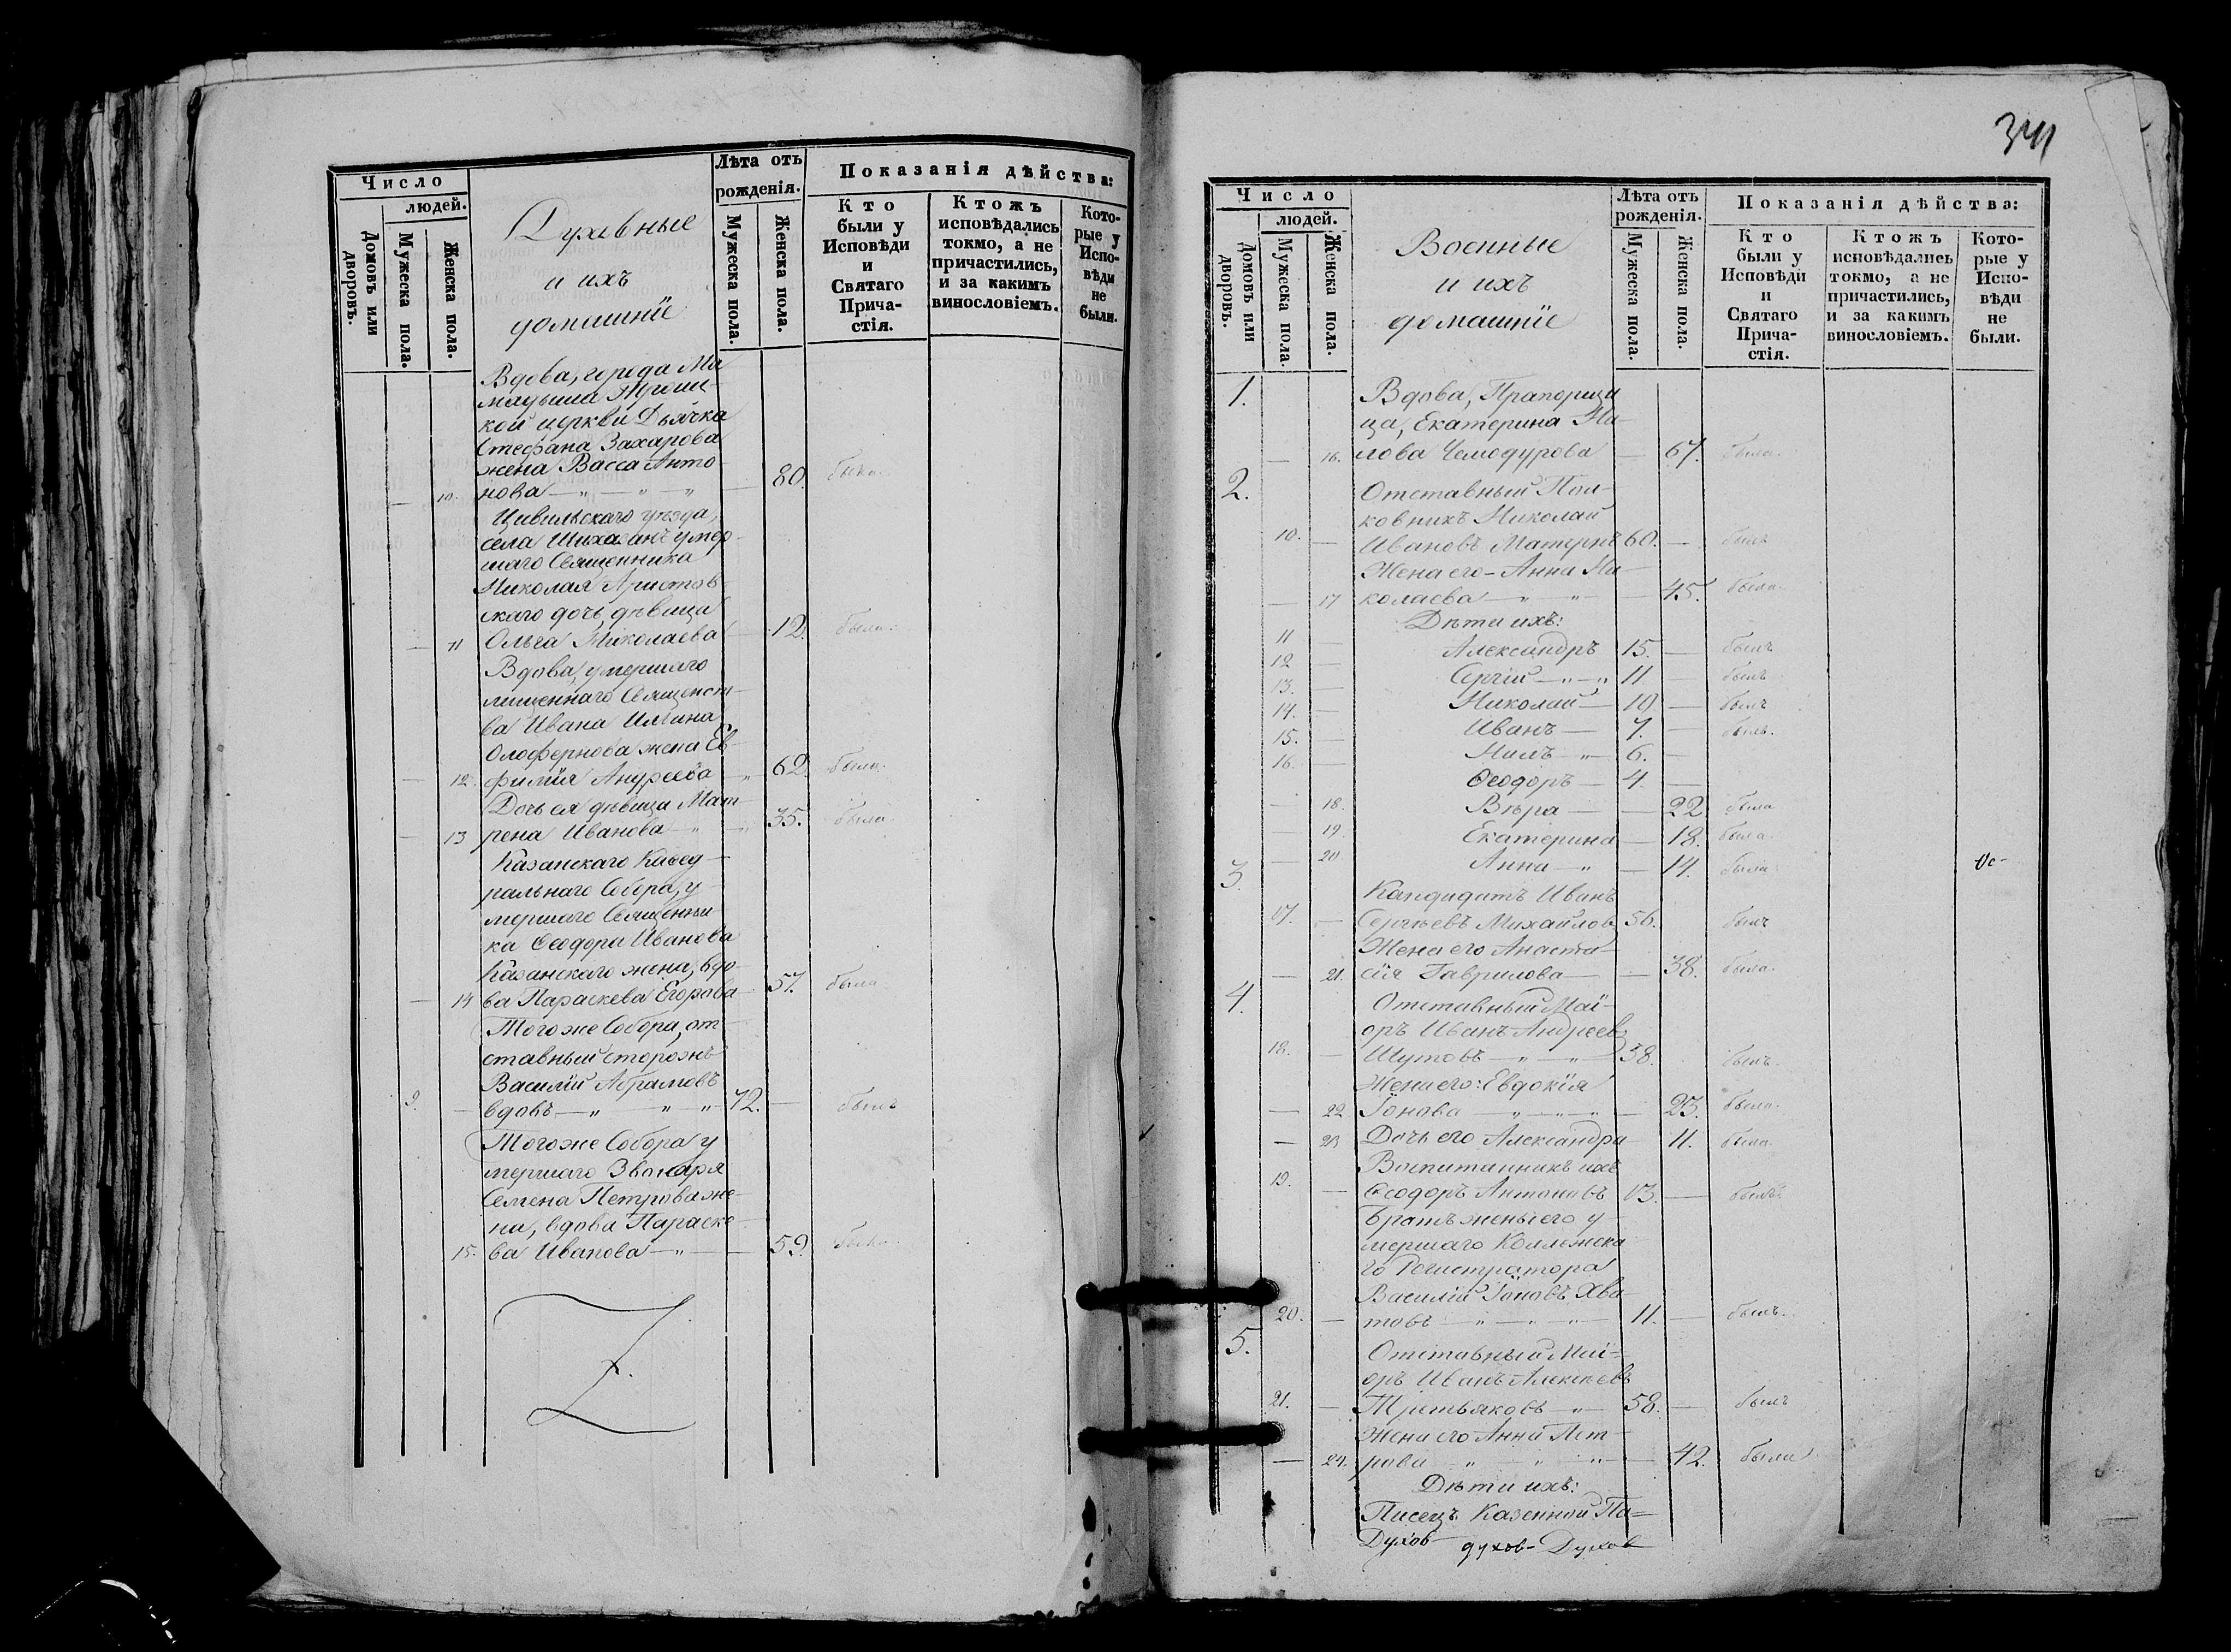 Число
людей.
Домовъ или дворовъ.
Мужеска пола.
Женска пола.
Духовные
и ихъ
домашніе
Лѣта отъ
рожденія.
Мужеска пола.
Женска пола.
Показанія дѣйства:
Кто
были у
Исповѣди
и
Святаго
Прича-
стія.
Ктожъ
исповѣдались
токмо, а не
причастились,
и за какимъ
винословіемъ.
Кото-
рые у
Испо-
вѣди
не
были.
Вдова, города Ма
мадыша Троиц-
кой церкви Дьячка
Стефана Захарова
жена Васса Анто-
— 10. нова — " — " — " — 80. была.
Цивильскаго уезда,
села Шихазанъ умер-
шаго Священника
Николая Аристов-
скаго дочь, дѣвица
— 11 Ольга Николаева — 12. была.
Вдова, умершаго
лишеннаго Священст-
ва Ивана Ильина
Олофернова жена Ев-
— 12. фимія Андреева — " 62. была.
Дочь ея дѣвица Мат-
— 13 рена Иванова — " — " 35. была.
Казанскаго Кафед-
ральнаго Собора, у-
мершаго Священни-
ка Ѳеодора Иванова
Казанскаго жена, вдо-
— 14 ва Параскева Егорова — 57. была.
Тогоже Собора, от-
ставный сторожъ
Василій Абрамовъ
9. — вдовъ — " — " — " 72. — былъ
Тогоже Собора у
мершаго Звонаря
Семена Петрова же-
на, вдова Параске-
15. ва Иванова — " — — 59. была.
341
Число
людей.
Домовъ или дворовъ.
Мужеска пола.
Женска пола.
Военные
и ихъ
домашніе
Лѣта отъ
рожденія.
Мужеска пола.
Женска пола.
Показанія дѣйства:
Кто
были у
Исповѣди
и
Святаго
Прича-
стія.
Ктожъ
исповѣдались
токмо, а не
причастились,
и за какимъ
винословіемъ.
Кото-
рые у
Испо-
вѣди
не
были.
1. Вдова, Прапорщи
ца, Екатерина На-
— 16. Чемодурова — 67. была.
2. Отставный Пол-
ковникъ Николай
10. — Ивановъ 60. — былъ
Жена его — Анна Ни-
— 17 колаева — " — " — 45. была.
Дѣти ихъ:
11 — Александръ 15. — былъ
12 — Сергій — " — " 11 — былъ
13. — Николай — 10 — былъ
14. — Иванъ — 7. — былъ.
15. — Нилъ — " — 6. —
16. — Ѳеодоръ — 4. —
— 18. Вѣра — — 22 была
— 19. Екатерина — 18. была.
— 20 Анна — " — 14. была
3. Кандидатъ Иванъ
17. — Сергѣевъ Михайлов 56. былъ
Жена его Анаста-
— 21. сія Гаврилова — — 38. была.
4. Отставный Маі-
оръ Иванъ Андреев
18. — Шутовъ — " — " — 38. былъ.
Жена его: Евдокія
— 22 Іонова — " — " — " — 23. была.
— 23 Дочь его Александра 11. была
Воспитанникъ ихъ
19. — Ѳеодоръ Антоновъ 13. — былъ.
Братъ жены его у-
мершаго Коллежска
го Регистратора
Василій Іоновъ Хва-
20. — товъ — " — " — " — 11. — былъ.
5. Отставный Маі-
оръ Иванъ Алексѣевъ
21. — Третьяковъ — " — 58. — былъ
Жена его Анна Пет-
— 24. рова " — " — " — 42. была
Дѣти ихъ:
Писецъ Казенной Па-
Духов духов- Духов